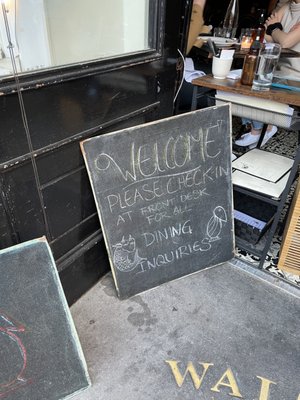 WELCOME
PLEASE CHECK-IN
AT FRONT DESK
FOR ALL
DINING
INQUIRIES
WAL